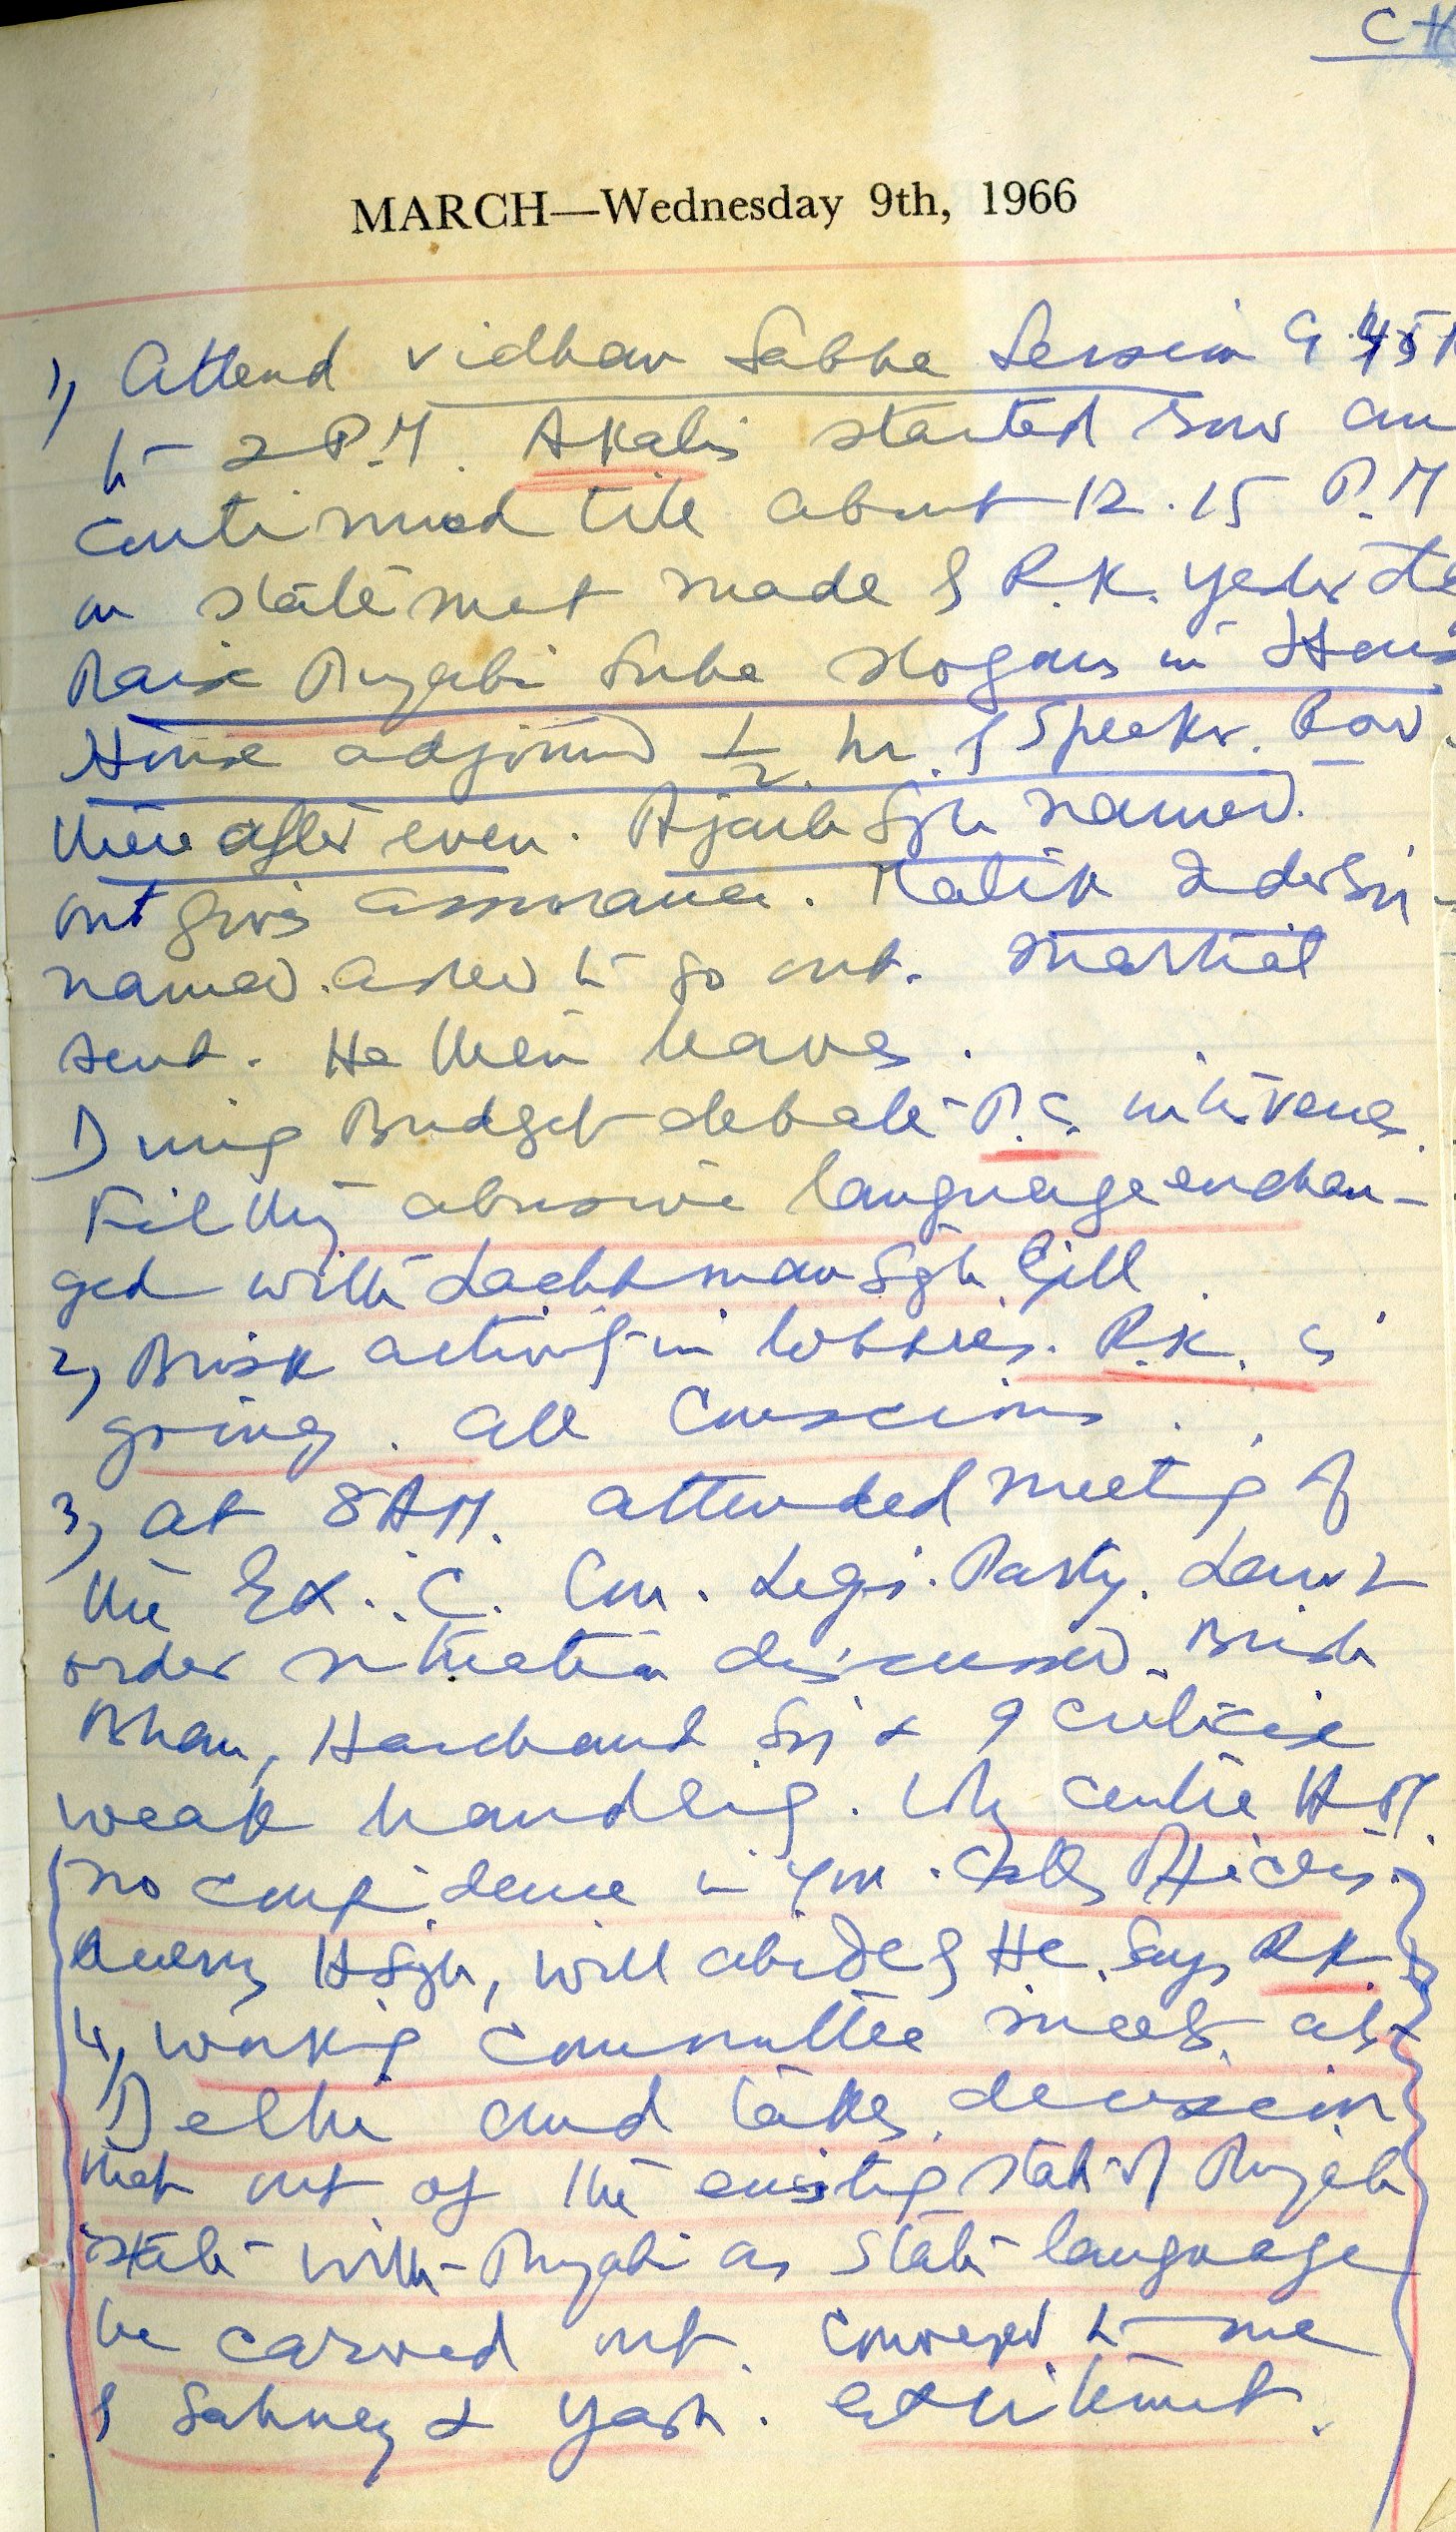 CH
MARCH—Wednesday 9th, 1966
1) Attend Vidhan Sabha Session 9.45
to 2 P.M. Akalis started row an
continued till about 12.15 P.M
on statement made by R.K. yester
Raise Punjabi Suba slogans in House
House adjourned ½ hr. by Speaker. Row
there after even. Ajaib Sgh named.
out gives assurance. Malik Inder Sn
named. asked to go out. Marshal
sent. He then leaves.
During Budget debate P.C. intervenes.
Filthy abusive language exchan-
ged with Lachhman Sgh Gill
2) Brisk activity in lobbies. R.K. is
going. all conscious.
3) at 8 A.M. attended meeting of
the Ex. C. Con. Legi. Party. Law &
order situation discussed. Brish
Bhan, Harchand Sn & I criticise
weak handling. Why centre H.M.
no confidence in you. Calls Officers.
H Sgh, will abide by He says R.K.
4) Working Committee meets at
Delhi and takes decision
that out of the existing state of Punjab
state with Punjabi as state language
be carved out. Conveyed to me
by Sahney & Yash. Excitement.